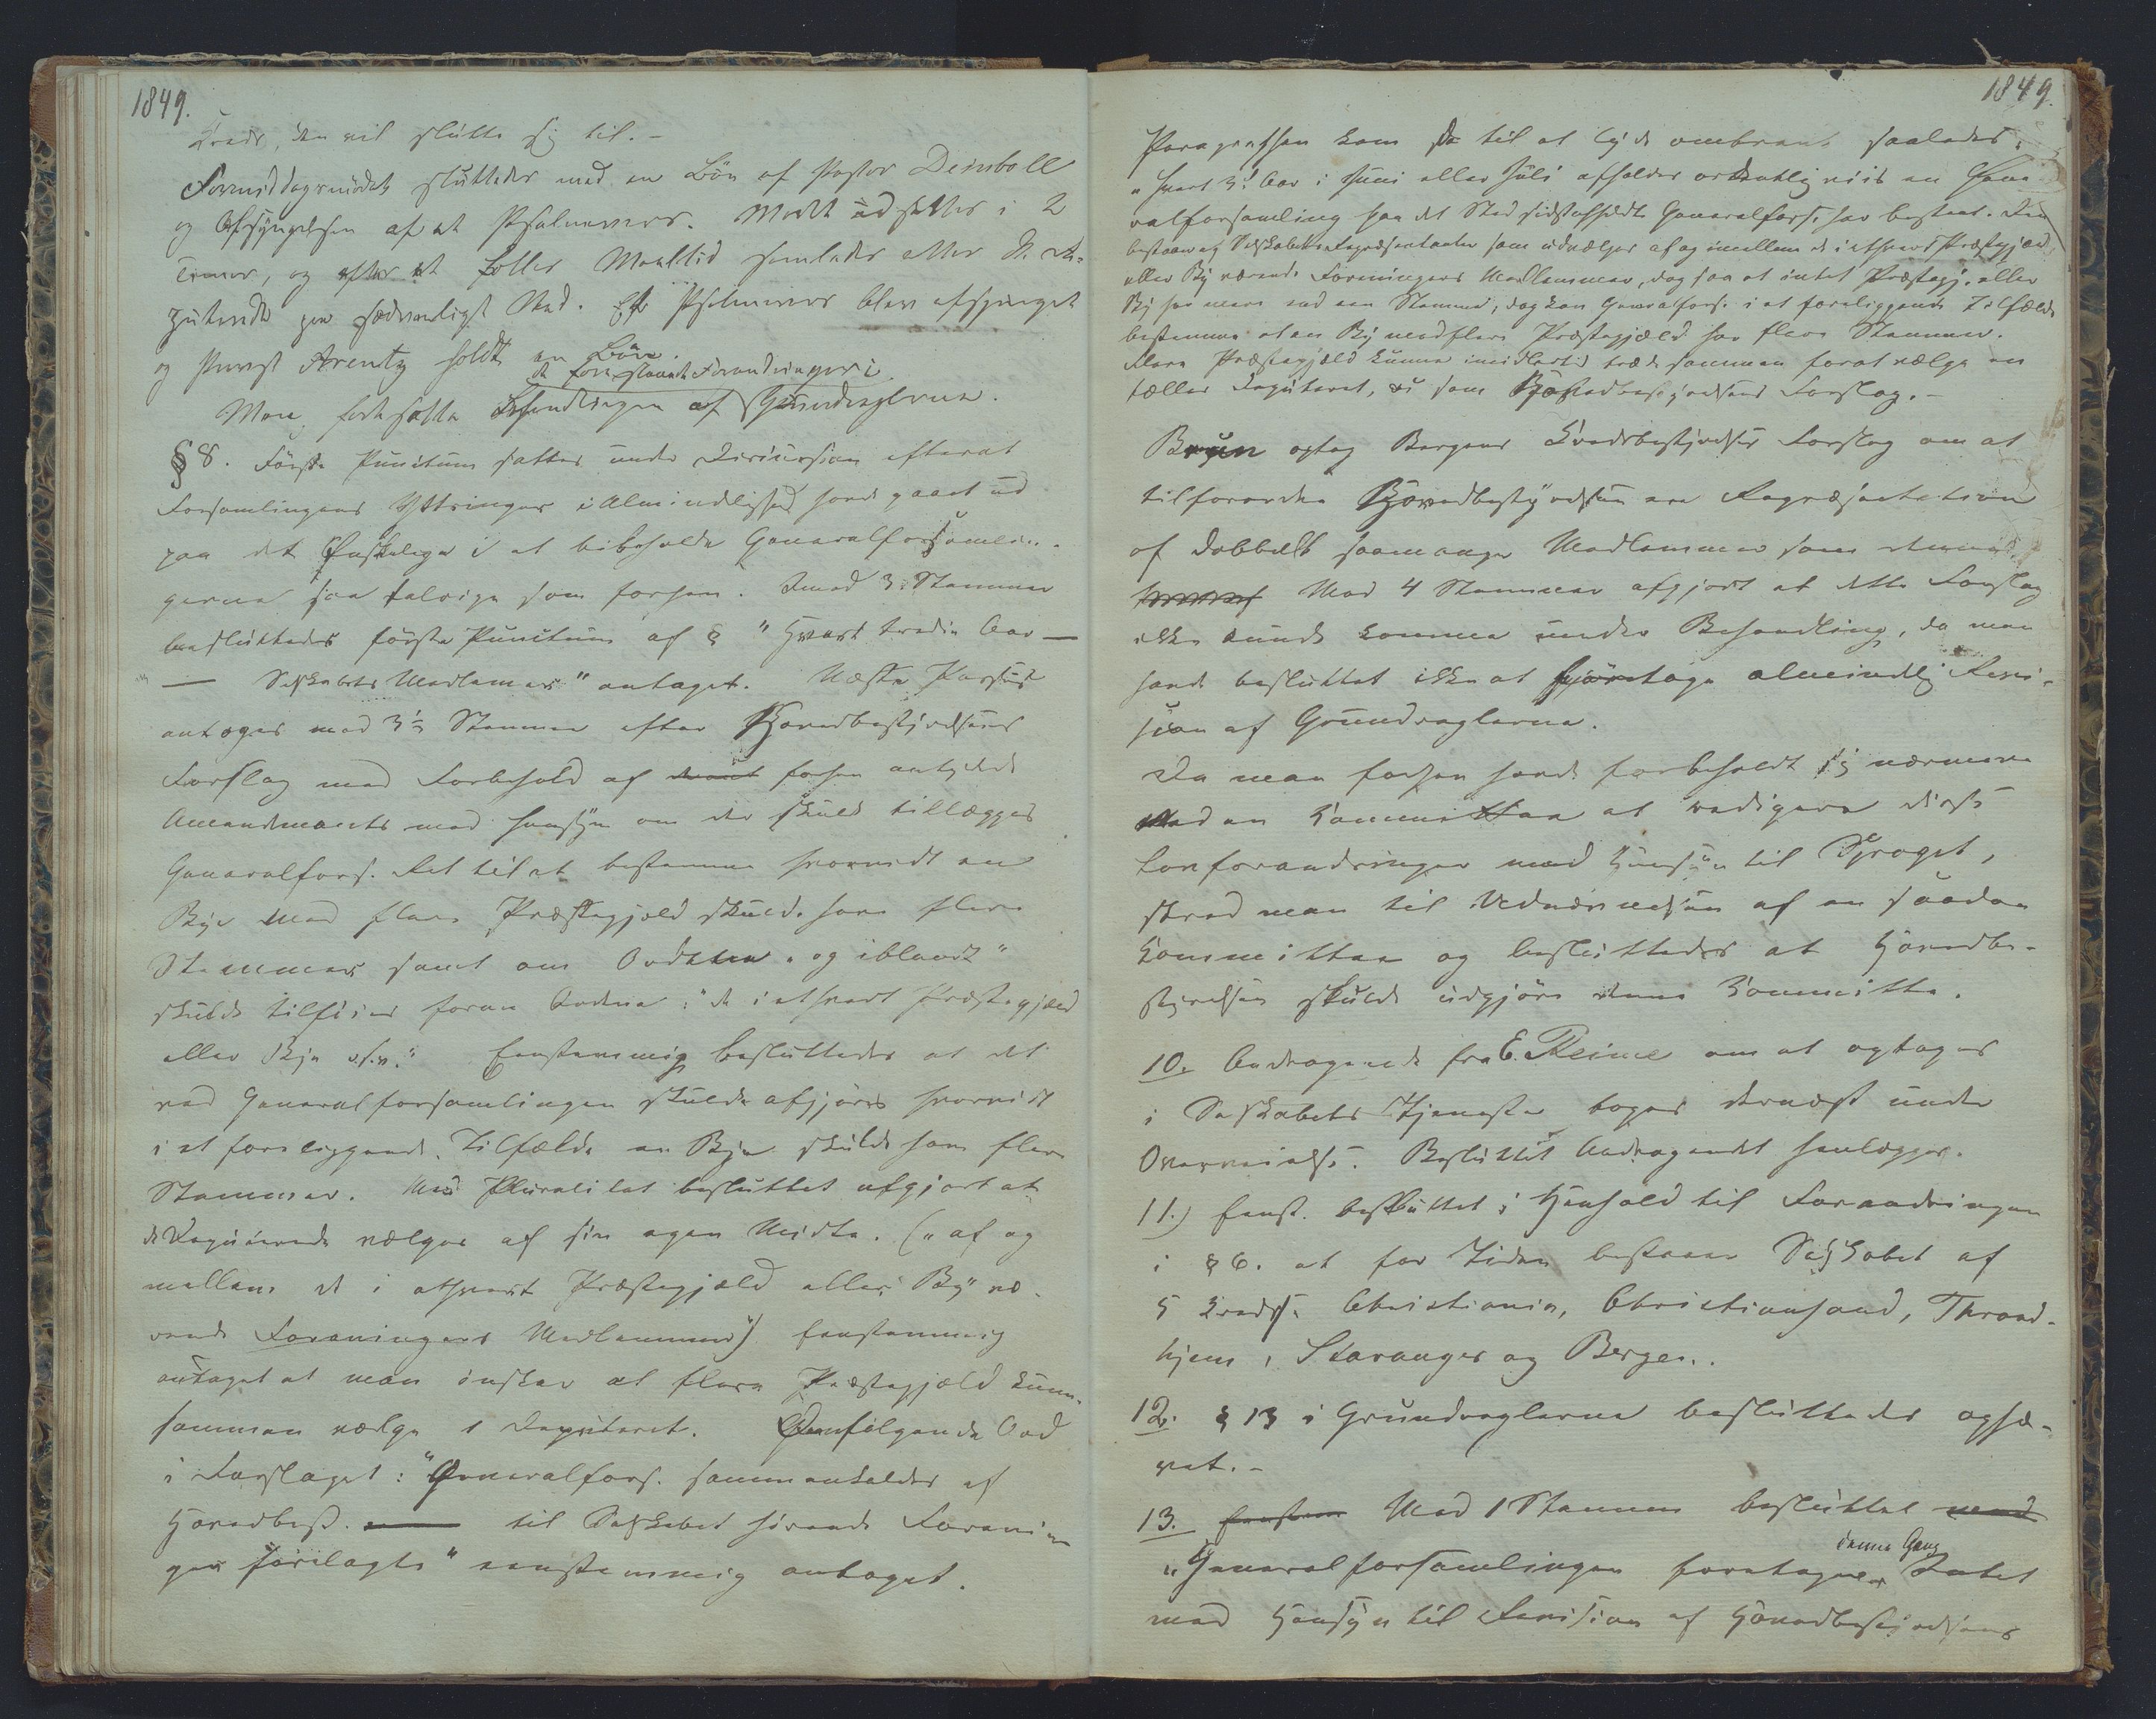 1849.
Kreds, den vil slutte sig til. –
Formiddagsmödet sluttedes med en Bön af Pastor Deinboll
og Afsyngelsen af et Psalmevers. Mödet udsattes i 2
Timer, og efter et fælles Maaltid samledes atter de De-
puterede paa sædvanligt Sted. Et Psalmevers blev afsjunget
og Provst Arentz holdt en Bön.
de foreslaaede Forandringer i
Man fortsatte Behandlingen af Grundreglerne.
§ 8. Förste Punctum sattes under Discussion efterat
Forsamlingens Yttringer i Almindelighed havde gaaet ud
paa det Önskelige i at bibeholde Generalforsamlin-
gerne saa talrige som forhen. Imod 3 Stemmer
besluttedes förste Punctum af § "Hvert tredie Aar —
— Selskabets Medlemer" antaget. Næste Passus
antoges mod 3 Stemmer efter Hovedbestyrelsens
Forslag med Forbehold af forhen antydede
Amendements med Hensyn om der skulde tillægges
Generalfors. Ret til at bestemme hvorvidt en
Bye med flere Præstegjeld skulde have flere
Stemmer samt om Ordene "og iblandt"
skulde tilföies foran Ordene: "de i ethvert Præstegjeld
eller Bye o.s.v." Eenstemmig besluttedes at det
ved Generalforsamlingen skulde afgjöres hvorvidt
i et foreliggende Tilfælde en Bye skulde have flere
Stemmer. Med Pluralitet besluttet afgjort at
de Deputerede vælges af sin egen Midte. ("af og
mellem de i ethvert Præstegjeld eller By væ-
rende Foreningers Medlemmer") Eenstemmig
antaget at man önsker at flere Præstegjeld kunne
sammen vælge 1 Deputeret. Paafölgende Ord
i Forslaget: "Generalfors. sammenkaldes af
Hovedbest. —— til Selskabet hörende Forenin
ger forelagte" eenstemmig antaget.
1849.
Paragraphen kom da til at lyde omtrent saaledes:
"Hvert 3die Aar i Juni eller Juli afholdes ordentligviis en Gene
ralforsamling paa det Sted sidstafholdte Generalfors. har bestemt. Den
bestaaer af Selskabets Repræsentanter som udvælges af og imellem de i ethvert Præstegjæld
eller By værende Foreningers Medlemmer, dog saa at intet Præstegj. eller
By har mere end een Stemme; dog kan Generalfors. i et foreliggende Tilfælde
bestemme at en By med flere Præstegjæld har flere Stemmer.
Flere Præstegjæld kunne imidlertid træde sammen forat vælge en
fælles Deputeret, &c som Hovedbestyrelsens Forslag. –
Bruun optog Bergens Kredsbestyrelses Forslag om at
tilforordne Hovedbestyrelsen en Repræsentation
af dobbelt saamange Medlemmer som denne
Mod 4 Stemmer afgjort at dette Forslag
ikke kunde komme under Behandling, da man
havde besluttet ikke at foretage almindelig Revi-
sion af Grundreglerne.
Da man forhen havde forbeholdt sig nærmere
ved en Committee at redigere disse
Lovforandringer med Hensyn til Sproget,
skred man til Udnævnelsen af en saadan
Committee og besluttedes at Hovedbe-
styrelsen skulde udgjöre denne Committe.
10. Andragende fra E. Reime om at optages
i Selskabets Tjeneste toges dernæst under
Overveielse. Besluttet Andragendet henlægges.
11.) Eenst. besluttet i Henhold til Forandringen
i § 6. at for Tiden bestaaer Selskabet af
5 Kredse Christiania, Christiansand, Thrond-
hjem, Stavanger og Bergen.
12. § 13 i Grundreglerne besluttedes ophæ-
vet. –
13. Mod 1 Stemme besluttet
denne Gang
"Generalforsamlingen foretager Intet
med Hensyn til Revision af Hovedbestyrelsens